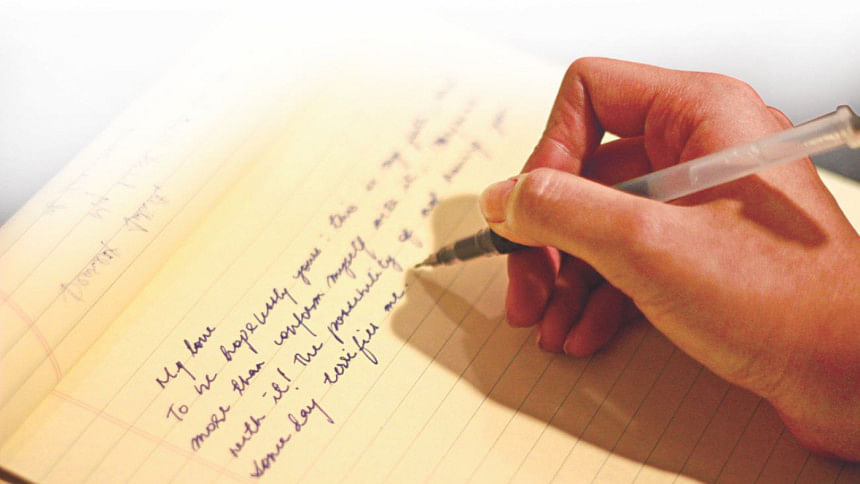 My love
To be hopelessly yours: this is my fate and
more than conform myself with it!
with it! The possibility of not having you
some day terrifies me.